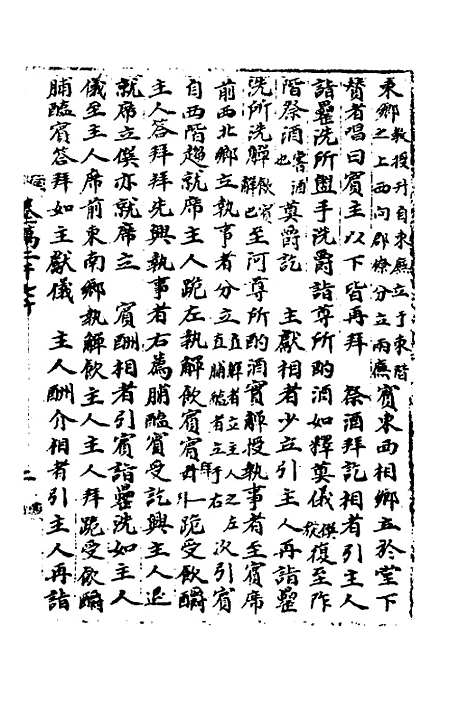 東鄉教授升自東廡立于東階之上西向郡僚分立兩廡賓東西相鄉立於堂下
贊者唱曰賓主以下皆再拜 祭酒拜訖相者引主人
詣罍洗所盥手洗爵詣尊所酌酒如釋奠儀復至阼
階祭酒奠爵訖 主獻相者少立引主人再詣罍
洗所洗觶至阿尊所酌酒實觶授執事者至賓席
前西北鄉立執事者分立執觶者立主人之左執脯醢者立于右次引賓
自西階趨就席主人跪左執觶飲賓賓跪受飲酹
主人答拜拜先興執事者右薦脯醢賓受訖興主人退
就席立僎亦就席立 賓酬相者引賓詣罍洗如主人
儀至主人席前東南鄉執觶飲主人主人拜跪受飲酹
脯醢賓答拜如主獻儀 主人酬介相者引主人再詣